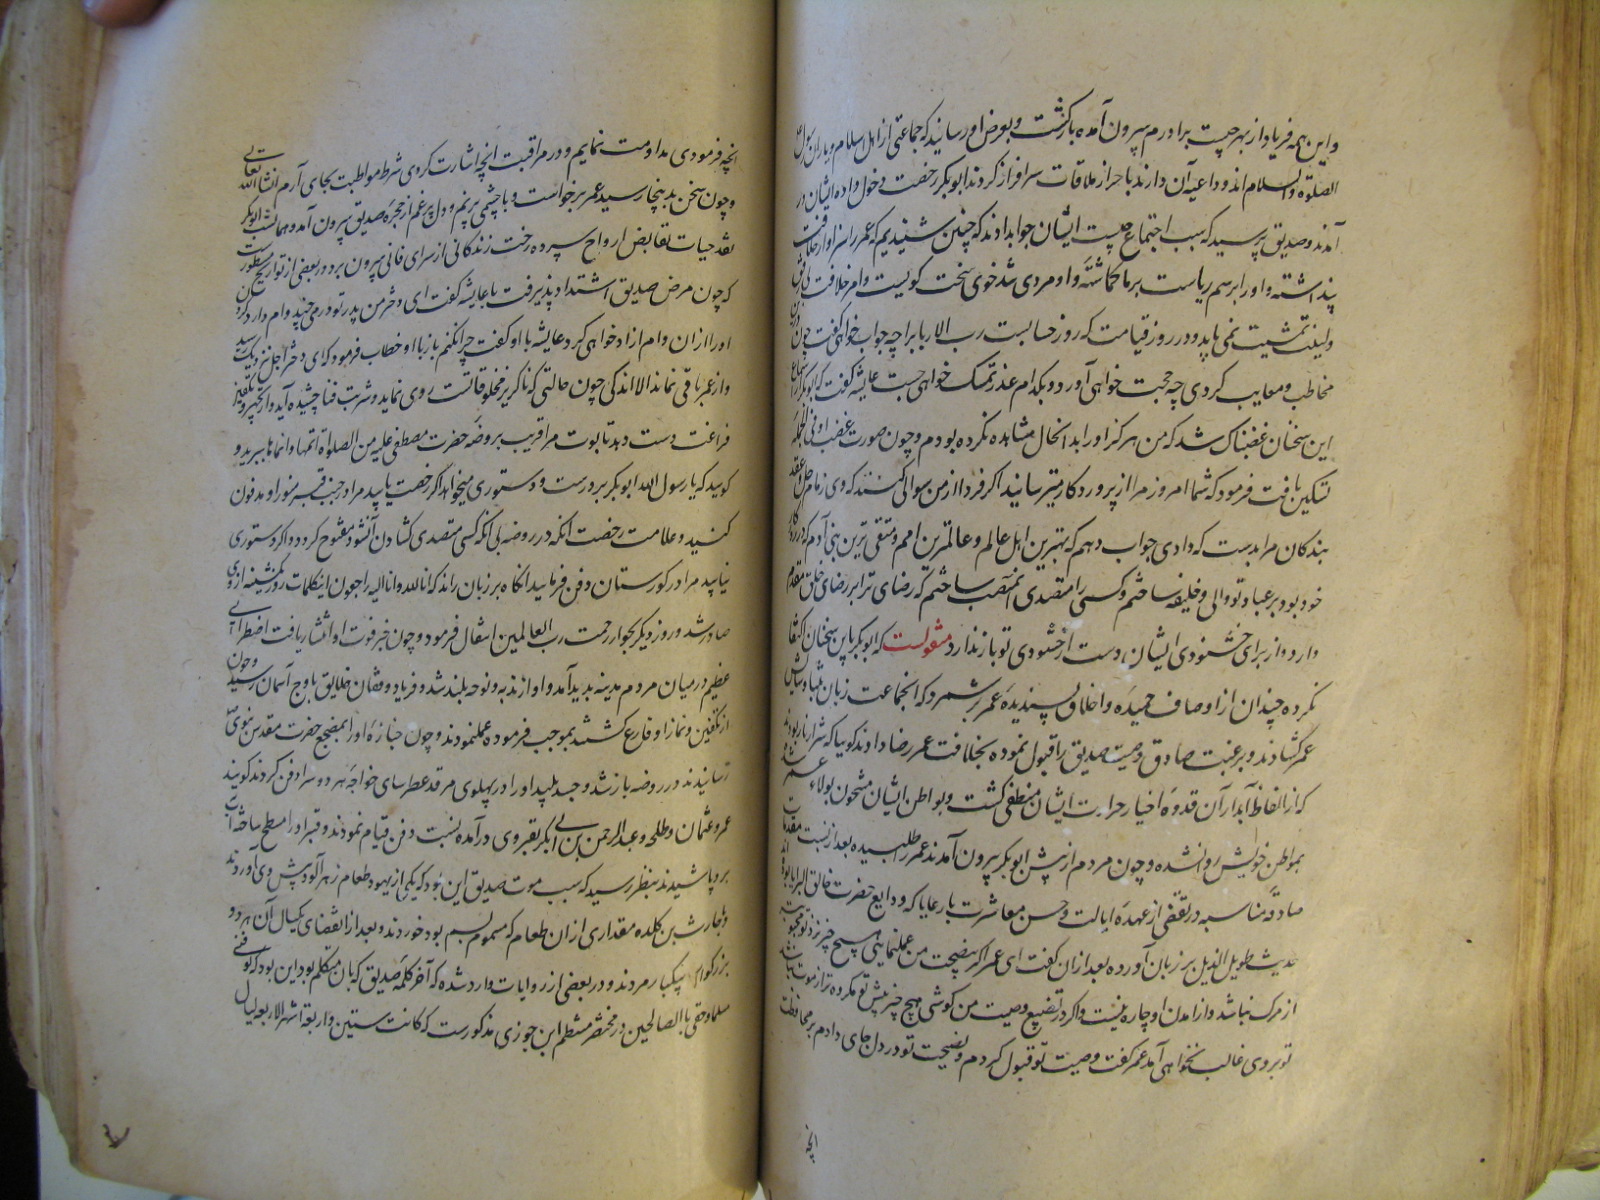 و این همه فریاد از بهر چیست برادرم بیرون آمده بازگشت و بعرض او رسانید که جماعتی از اهل اسلام و یاران رسول
الصلوة والسلام اند و داعیه آن دارند باحراز ملاقات سرافراز کردند ابوبکر رخصت دخول داده ایشان در
آمدند و صدیق پرسید که سبب اجتماع چیست ایشان جواب دادند که چنین شنیدیم که عمر را سزاوار خلافت
پنداشته و او را برسم ریاست بر ما گماشته و او مردی تندخوی سخت کویست و امر خلافت بی
تمشیت نمی یابد و در روز قیامت که روز حسابست رب الارباب را چه جواب خواهی گفت چون
مخاطب و معایب کردی چه حجت خواهی آورد و بکدام عذر تمسک خواهی جست عایشه گفت که ابوبکر از
این سخنان غضبناک شد که من هرگز او را بدانحال مشاهده نکرده بودم و چون صورت غضب او فی الجمله
تسکین یافت فرمود که شما امروز مرا از پروردکار میترسانید اگر فردا از من سوالی کنند که وی زمام حل و عقد
بندکان مرا بدست که دادی جواب دهم که بهترین اهل عالم و عالمترین امم و متقی ترین بنی آدم که
خود بود بر عباد تو والی و خلیفه ساختم و کسی را متصدی این منصب ساختم که رضای ترا بر رضای خلق مقدم
دارد و از برای خشنودی ایشان دست از خشنودی تو باز ندارد منقولست که ابوبکر باین سخنان اکتفا
نکرده چندان از اوصاف حمیده و اخلاق پسندیده عمر بر شمرد که انجماعت زبان بثنا و ستایش
عمر گشادند و برغبت صادق وصیت صدیق را قبول نموده بخلافت عمر رضا دادند کوییا که شرار
که از الفاظ آبدار آن قدوه اخیار حرارت ایشان منطفی گشت و بواطن ایشان مشحون بولاء عمر
بمواطن خویش روان شده و چون مردم از پیش ابوبکر بیرون آمدند عمر را طلبیده بعد از
مناسبه در تقصی از عهده ایالت و حسن معاشرت با رعایا که ودایع حضرت خالق البرایا
حدیث طویل الذیل بر زبان آورده بعد از آن گفت ای عمر اگر بنصیحت من عمل نمایی هیچ چیز نزد تو محبوب
از مرک نباشد و از امدن او چاره نیست و اگر در تضییع وصیت من کوشی هیچ چیز پیش تو مکروه تر از موت نباشد
تو بروی غالب نخواهی آمد عمر گفت وصیت تو قبول کردم و نصیحت تو در دل جای دادم بر محافظت
انچه
انچه فرمودی مداومت نمایم و در مراقبت انچه اشارت کردی شرط مواظبت بجای آرم انشا الله تعالی
و چون سخن بدینجا رسید عمر برخواست و با چشمی پر نم و دل پر غم از حجره صدیق بیرون آمد و همانست ابوبکر
نقد حیات بقابض ارواح سپرده رخت زندکانی از سرای فانی بیرون برد و در بعضی از تواریخ مسطورست
که چون مرض صدیق اشتداد پذیرفت با عایشه گفت ای دختر من پدر تو درمی چند وام دارد
او را از ان وام ازاد خواهی کرد عایشه با او گفت چرا نکنم باز با او خطاب فرمود که ای دختر اجل نزدیک رسید
و از عمر باقی نماند الا اندکی چون حالتی که ناگزیر مخلوقاتست روی نماید و شربت فنا چشیده آید و از تجهیز و تکفین
فراغت دست دهد تابوت مرا قریب بروضه حضرت مصطفی علیه من الصلوة اتمها و انماها ببرید و
کویید که یا رسول الله ابوبکر بر درست و دستوری میخواهد اگر رخصت یابید مرا در جنب قبر منور او مدفون
کنید و علامت رخصت انکه در روضه بی انکه کسی متصدی کشادن آن شود مفتوح کردد و اگر دستوری
نیابید مرا در کورستان دفن فرمایید انکاه بر زبان راند که انا لله و انا الیه راجعون اینکلمات روز دوشنبه از وی
صادر شد و روز دیگر بجوار رحمت رب العالمین انتقال فرمود و چون خبر فوت او انتشار یافت اضطرابی
عظیم در میان مردم مدینه پدید آمد و آواز ندبه و نوحه بلند شد و فریاد و فغان خلایق باوج آسمان رسید و چون
از تکفین و نماز او فارغ گشتند بموجب فرموده عمل نمودند و چون جنازه او را بمضجع حضرت مقدس نبوی
رسانیدند در روضه باز شد و جسد او را در پهلوی مرقد عطر سای خواجه هر دو سرا دفن کردند کویند
عمر و عثمان و طلحه و عبدالرحمن بن ابی بکر بقبر وی درآمده بسنت دفن قیام نمودند و قبر او را مسطح ساخته آب
برو پاشیدند بنظر رسید که سبب موت صدیق این بود که یکی از یهود طعام زهرآلود پیش وی آوردند
و حارث بن کلده مقداری از ان طعام که مسموم بسم بود خوردند و بعد از انقضای یکسال آن هر دو
بزرکوار بیکبار مردند و در بعضی از روایات وارد شده که آخر کلمه صدیق که بان متکلم بود این بود که توفنی
مسلما و حقی بالصالحین در مختصر منتظم ابن جوزی مذکورست که کانت سنتین و اربعة اشهر الا اربع لیال